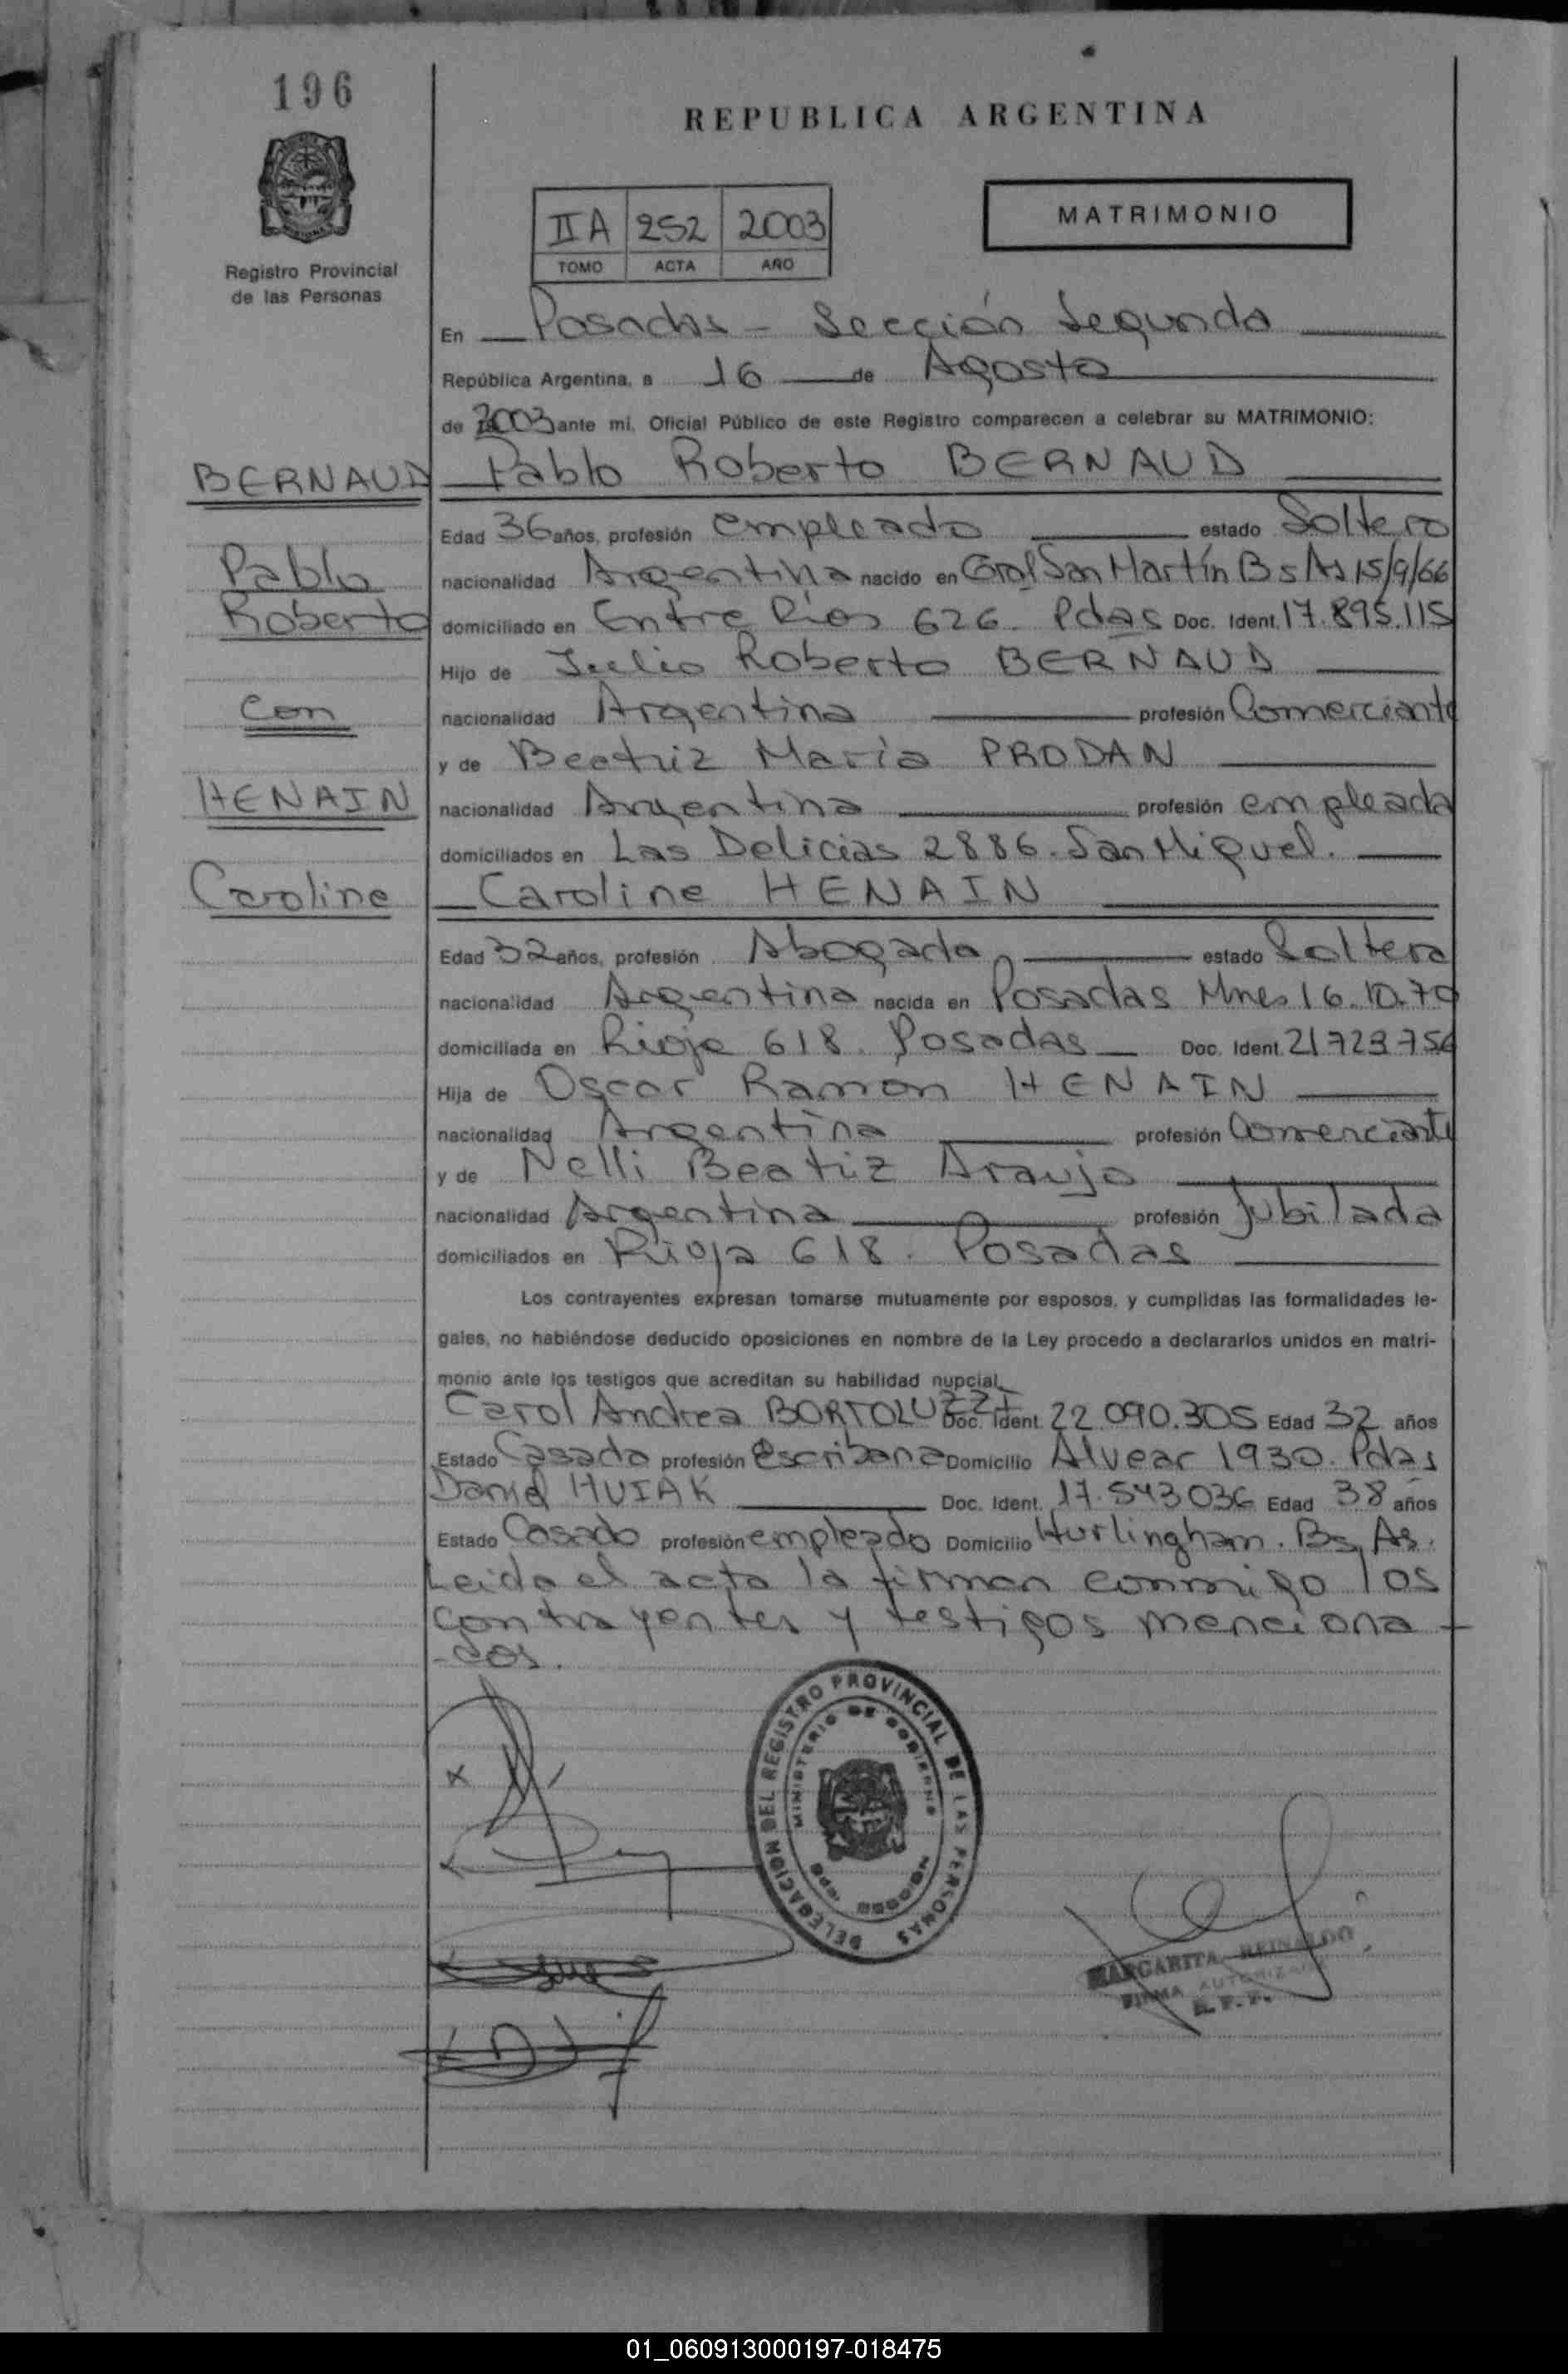 196
REPUBLICA ARGENTINA
Registro Provincial
de las Personas
II A 252 2003
TOMO ACTA AÑO
MATRIMONIO
En Posadas - Sección Segunda
República Argentina, a 16 de Agosto
de 2003 ante mi, Oficial Público de este Registro comparecen a celebrar su MATRIMONIO:
BERNAUD
Pablo
Roberto
con
HENAIN
Caroline
Pablo Roberto BERNAUD
Edad 36 años, profesión empleado estado Soltero
nacionalidad Argentina nacido en Gral San Martín Bs As 15/9/66
domiciliado en Entre Ríos 626. Pdas Doc. Ident. 17.895.115
Hijo de Julio Roberto BERNAUD
nacionalidad Argentina profesión Comerciante
y de Beatriz María PRODAN
nacionalidad Argentina profesión empleada
domiciliados en Las Delicias 2886. San Miguel.
Caroline HENAIN
Edad 32 años, profesión Abogada estado Soltera
nacionalidad Argentina nacida en Posadas Mnes 16.10.70
domiciliada en Rioja 618. Posadas Doc. Ident. 21723756
Hija de Oscar Ramon HENAIN
nacionalidad Argentina profesión Comerciante
y de Nelli Beatriz Araujo
nacionalidad Argentina profesión Jubilada
domiciliados en Rioja 618. Posadas
Los contrayentes expresan tomarse mutuamente por esposos, y cumplidas las formalidades le-
gales, no habiéndose deducido oposiciones en nombre de la Ley procedo a declararlos unidos en matri-
monio ante los testigos que acreditan su habilidad nupcial.
Carol Andrea BORTOLUZZI Doc. Ident. 22.090.305 Edad 32 años
Estado Casada profesión Escribana Domicilio Alvear 1930. Pdas
Daniel HUIAK Doc. Ident. 17.543036 Edad 38 años
Estado Casado profesión empleado Domicilio Hurlingham. Bs. As.
Leida el acta la firman conmigo los
contrayentes y testigos menciona-
-dos.
DELEGACION DEL REGISTRO PROVINCIAL DE LAS PERSONAS
MINISTERIO DE GOBIERNO
MARGARITA REINALDO
FIRMA AUTORIZADA
R.P.P.
01_060913000197-018475